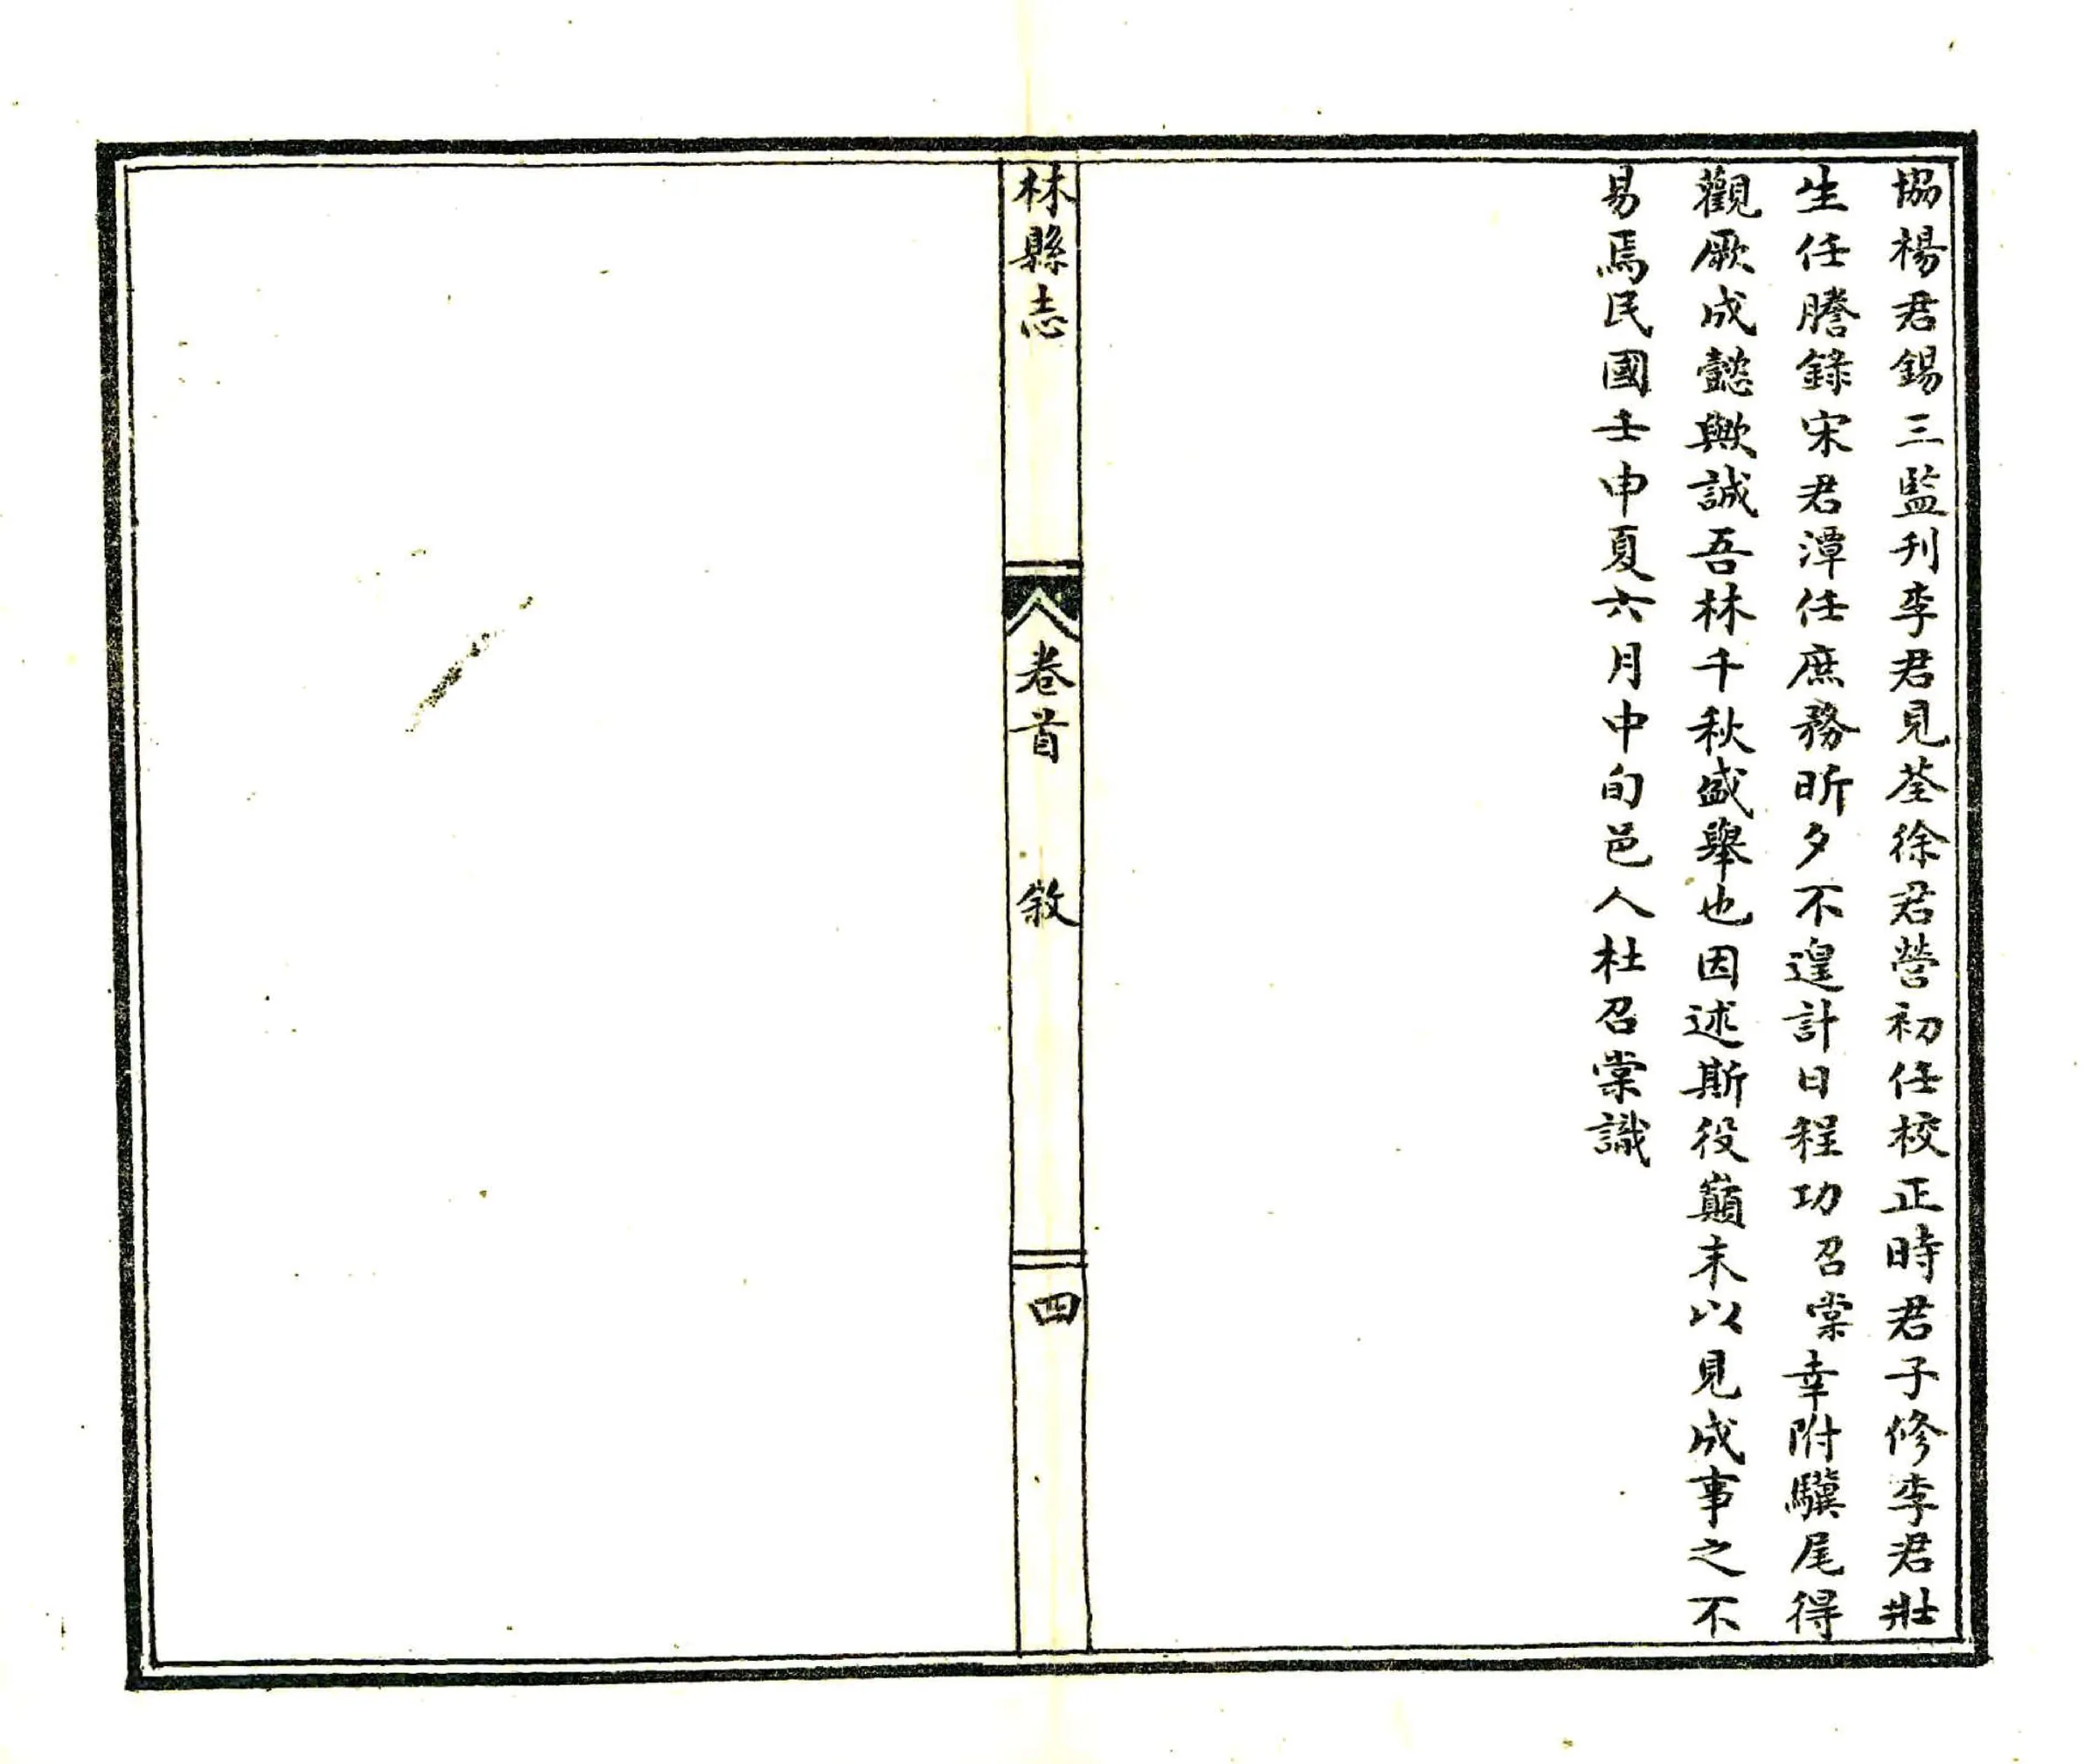 協楊君錫三監刋李君見荃徐君營初任校正時君子修李君壯
生任謄錄宋君潭任庶務昕夕不遑計日程功召棠幸附驥尾得
觀厥成懿歟誠吾林千秋盛舉也因述斯役巔末以見成事之不
易焉民國壬申夏六月中旬邑人杜召棠識
林縣志
卷首
敘
四